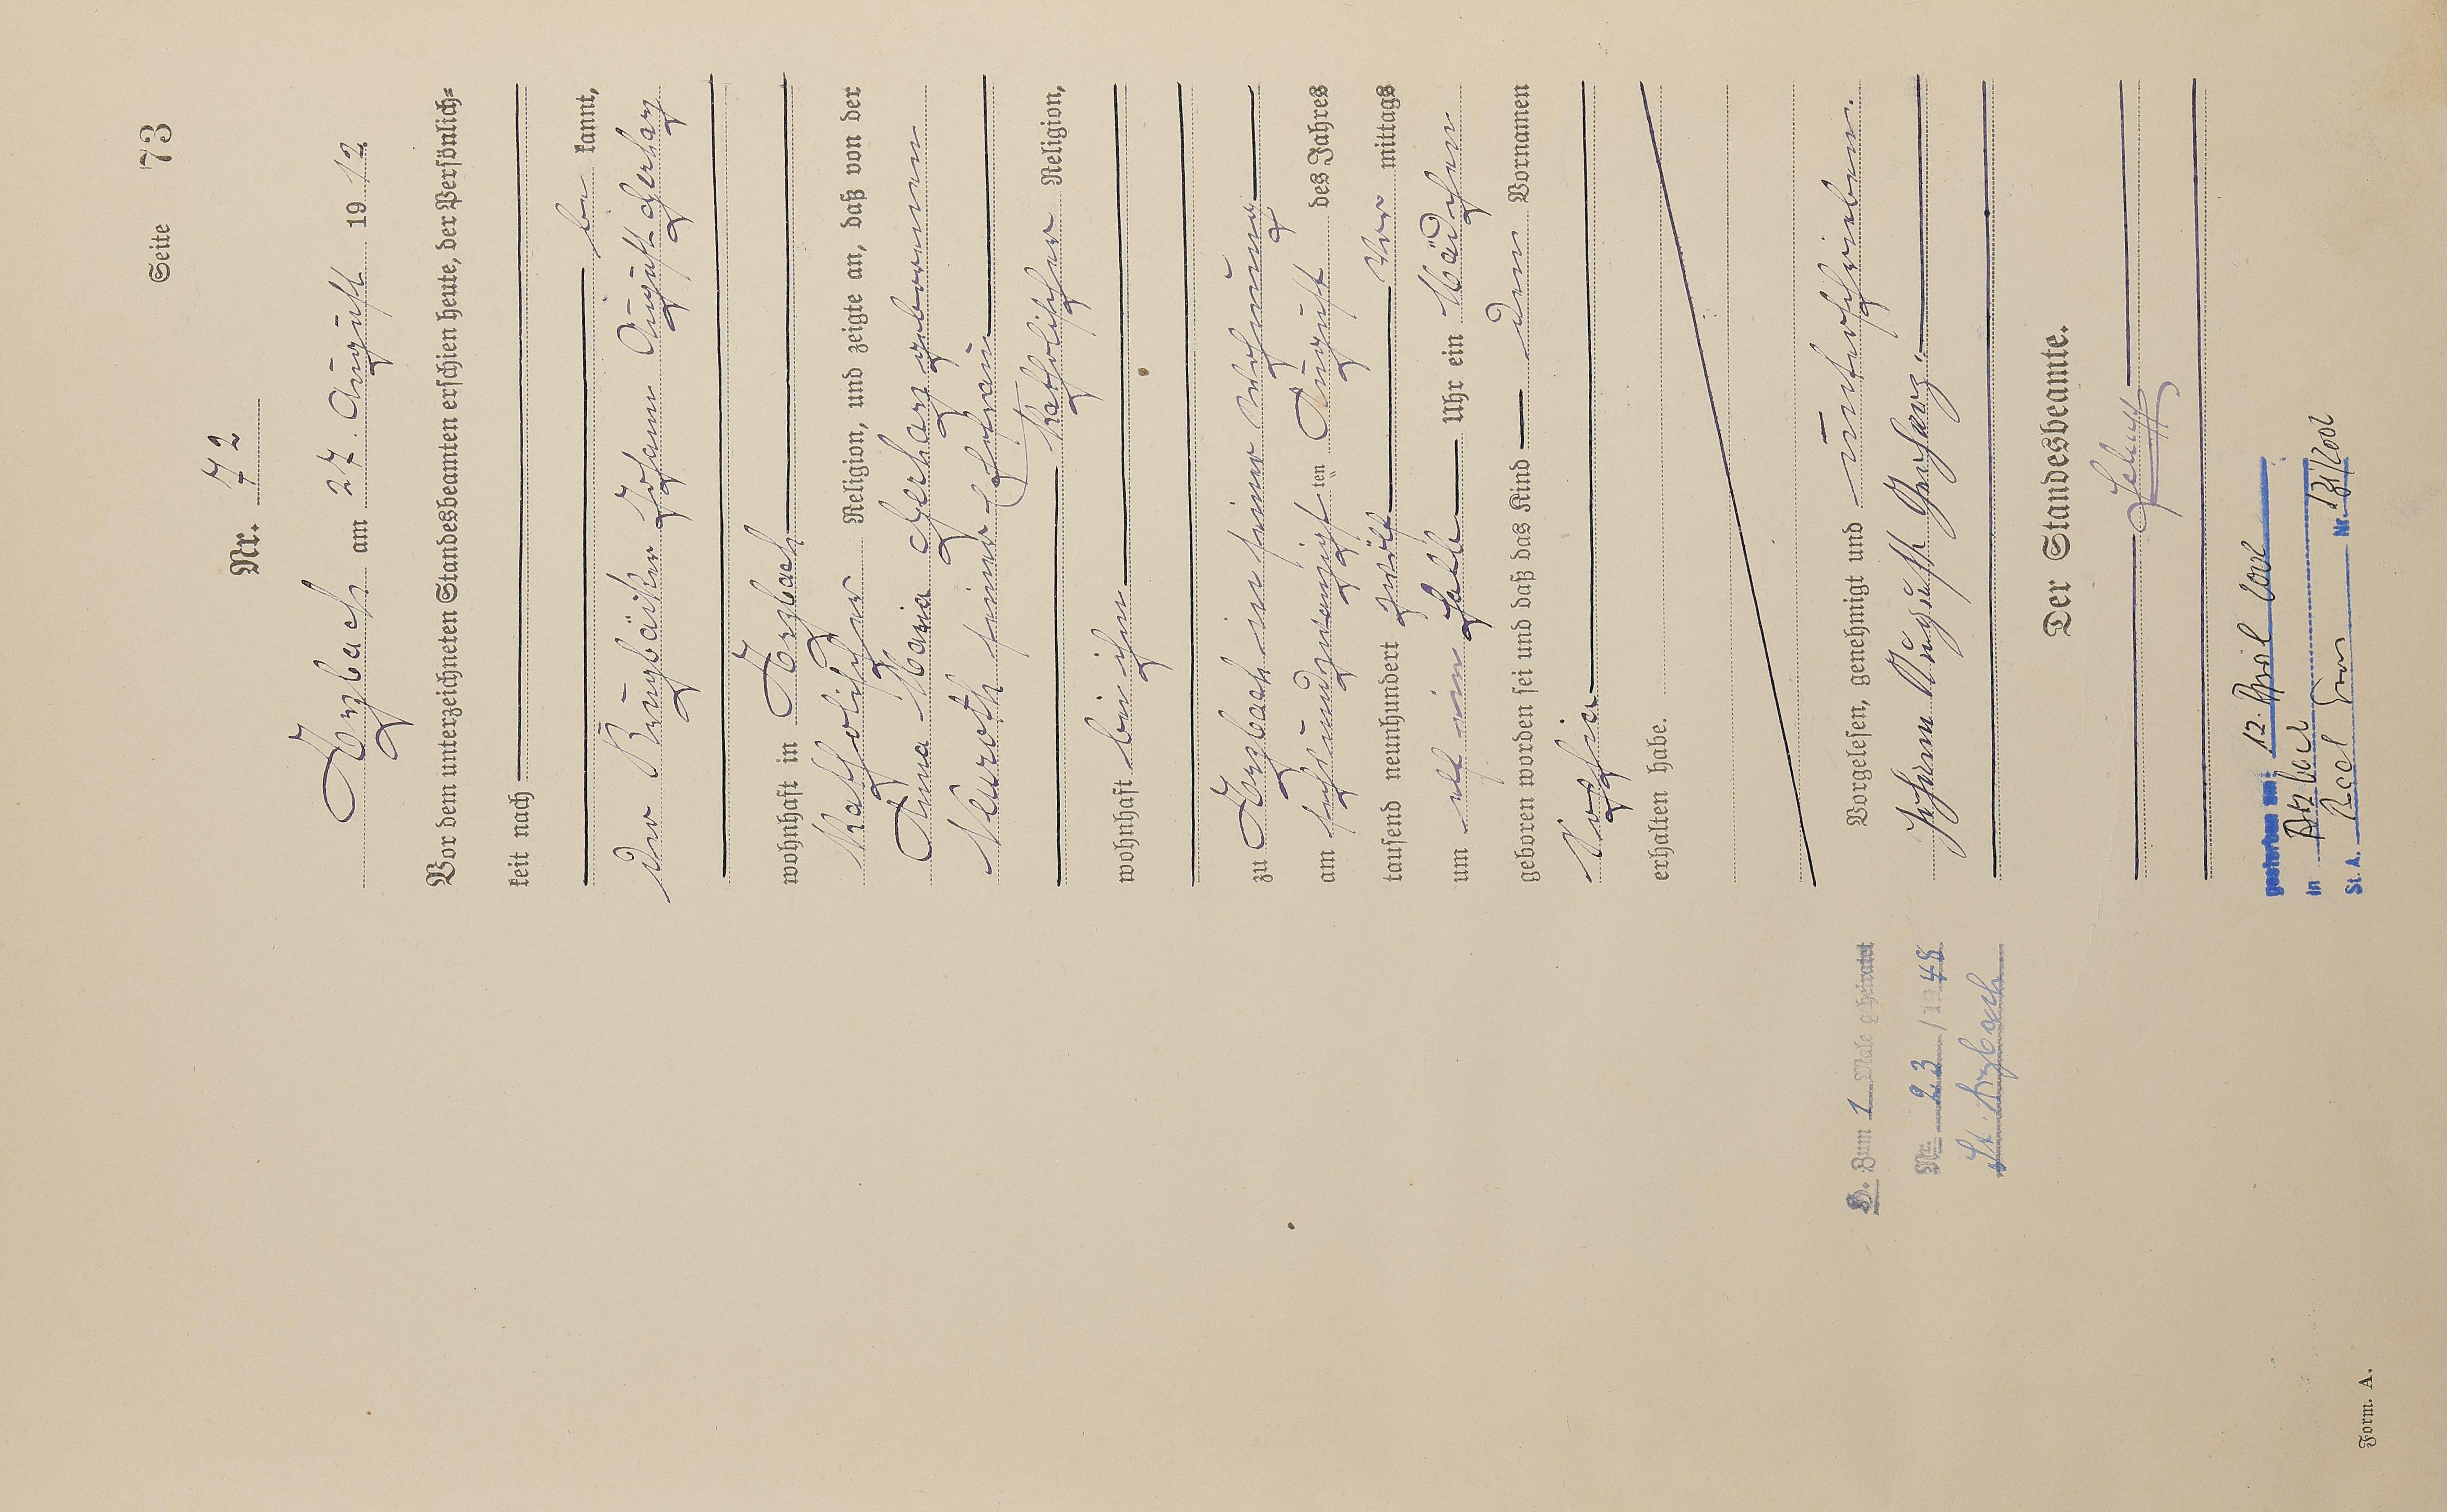 Seite 73
Nr. 72
Arzbach am 27. August 1912
Vor dem unterzeichneten Standesbeamten erschien heute, der Persönlich=
keit nach
be kannt,
der Johann August Gerharz
wohnhaft in Arzbach
katholischer Religion, und zeigte an, daß von der
Anna Maria Gerharz geborenen
Neuroth seiner Ehefrau
katholischer Religion,
wohnhaft bei ihm
zu Arzbach in seiner Wohnung
am sechsundzwanzigsten August des Jahres
tausend neunhundert zwölf Vor mittags
um elf einhalb Uhr ein Mädchen
geboren worden sei und daß das Kind den Vornamen
Sophia
erhalten habe.
Vorgelesen, genehmigt und unterschrieben.
Johann August Gerharz.
Der Standesbeamte.
G. Zum 1 Male geheiratet
Nr. 23/1948
St. Arzbach
gestorben am: 12. April 2002
in Arzbach
St. A. Bad Ems Nr. 131/2002
Form. A.